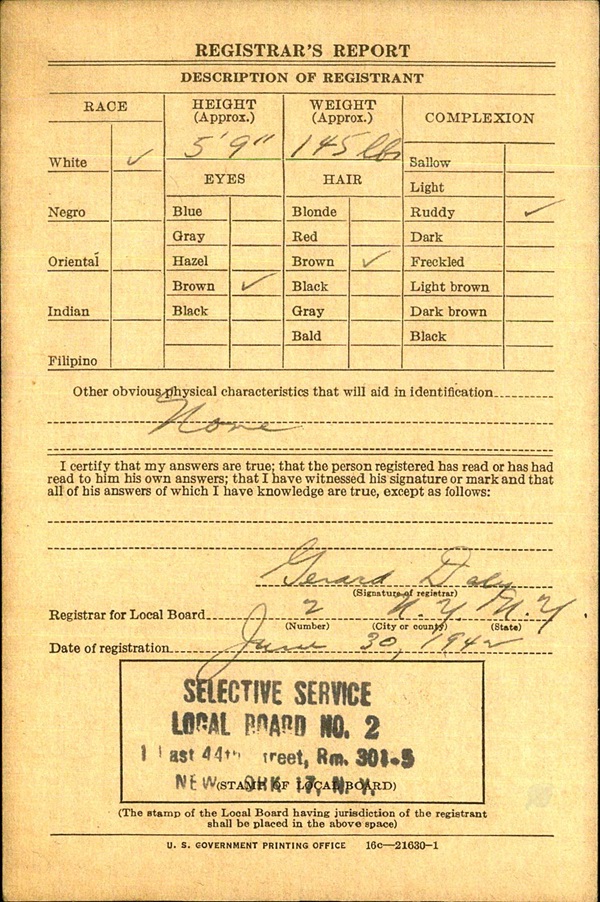 REGISTRAR'S REPORT
DESCRIPTION OF REGISTRANT
RACE
HEIGHT
(Approx.)
WEIGHT
(Approx.)
COMPLEXION
5'9"
145 lbs
White ✓
Sallow
EYES
HAIR
Light
Negro
Blue
Blonde
Ruddy ✓
Gray
Red
Dark
Oriental
Hazel
Brown ✓
Freckled
Brown ✓
Black
Light brown
Indian
Black
Gray
Dark brown
Bald
Black
Filipino
Other obvious physical characteristics that will aid in identification
None
I certify that my answers are true; that the person registered has read or has had
read to him his own answers; that I have witnessed his signature or mark and that
all of his answers of which I have knowledge are true, except as follows:
Gerard Daly
(Signature of registrar)
Registrar for Local Board 2 N.Y. N.Y.
(Number) (City or county) (State)
Date of registration June 30, 1942
SELECTIVE SERVICE
LOCAL BOARD NO. 2
44th Street, Rm. 301-5
NEW YORK 17, N.Y.
(STAMP OF LOCAL BOARD)
(The stamp of the Local Board having jurisdiction of the registrant
shall be placed in the above space)
U. S. GOVERNMENT PRINTING OFFICE 16c—21630-1